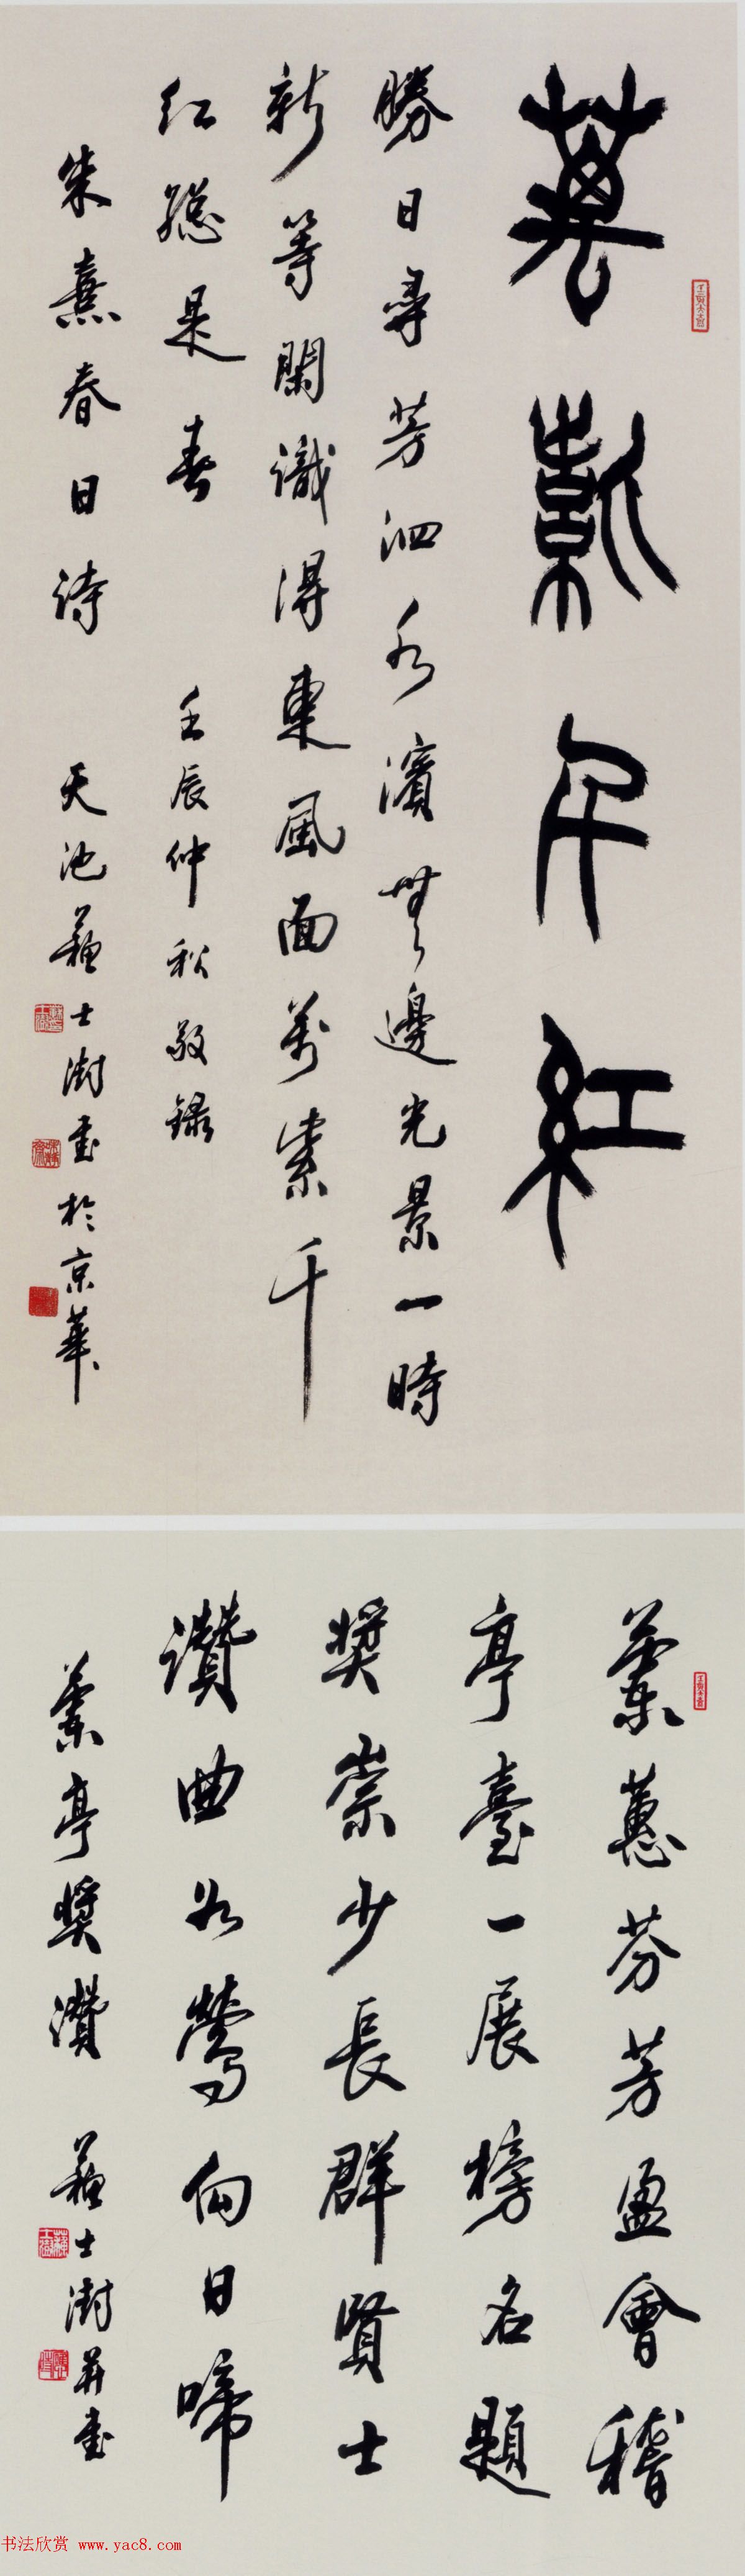 萬紫千紅
勝日尋芳泗水濱無邊光景一時
新等閑識得東風面萬紫千
红總是春 壬辰仲秋敬録
朱熹春日诗 天池蘇士澍書於京華
蘭蕙芬芳盈會稽
亭臺一展榜名題
獎崇少長群賢士
讚曲如鶯向日啼
蘭亭獎讚 蘇士澍并書
书法欣赏 www.yac8.com